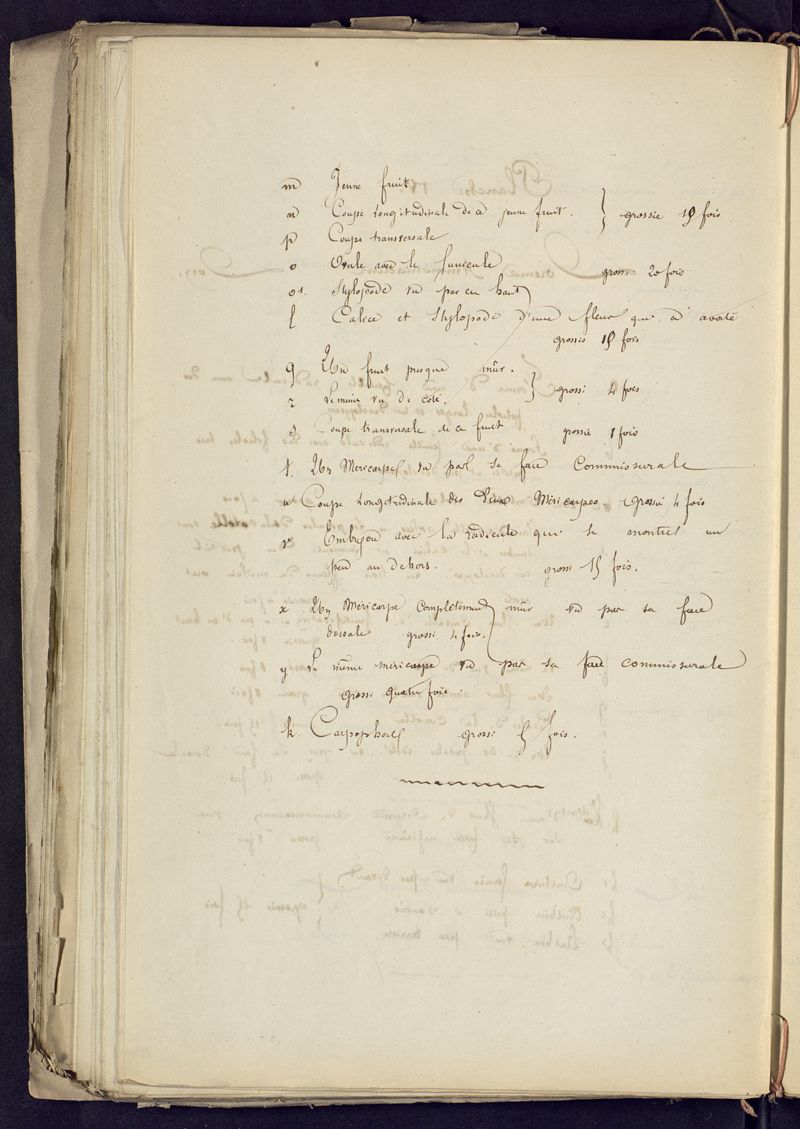 m Jeune fruit
n Coupe longitudinale de ce jeune fruit. } grossie 15 fois
p Coupe transversale
o Ovule avec le funicule grossi 20 fois
o1. Stylopode vu par en haut
l Calice et Stylopode d'une fleur qui a avorté
grossis 15 fois
q Un fruit presque mûr.
r Le même vu de coté. } grossi 4 fois
s Coupe transversale de ce fruit grossie 8 fois
t. Un Mericarpe vu par sa face Commissurale
u Coupe longitudinale des deux Méricarpes. grossie 4 fois
v Embryon avec la radicule qui se montre un
peu au dehors. grossi 15 fois.
x Un Mericarpe complètement mûr vu par sa face
dorsale grossi 4 fois.
y Le même méricarpe vu par sa face commissurale
grossi quatre fois.
k. Carpophore grossi 5 fois.